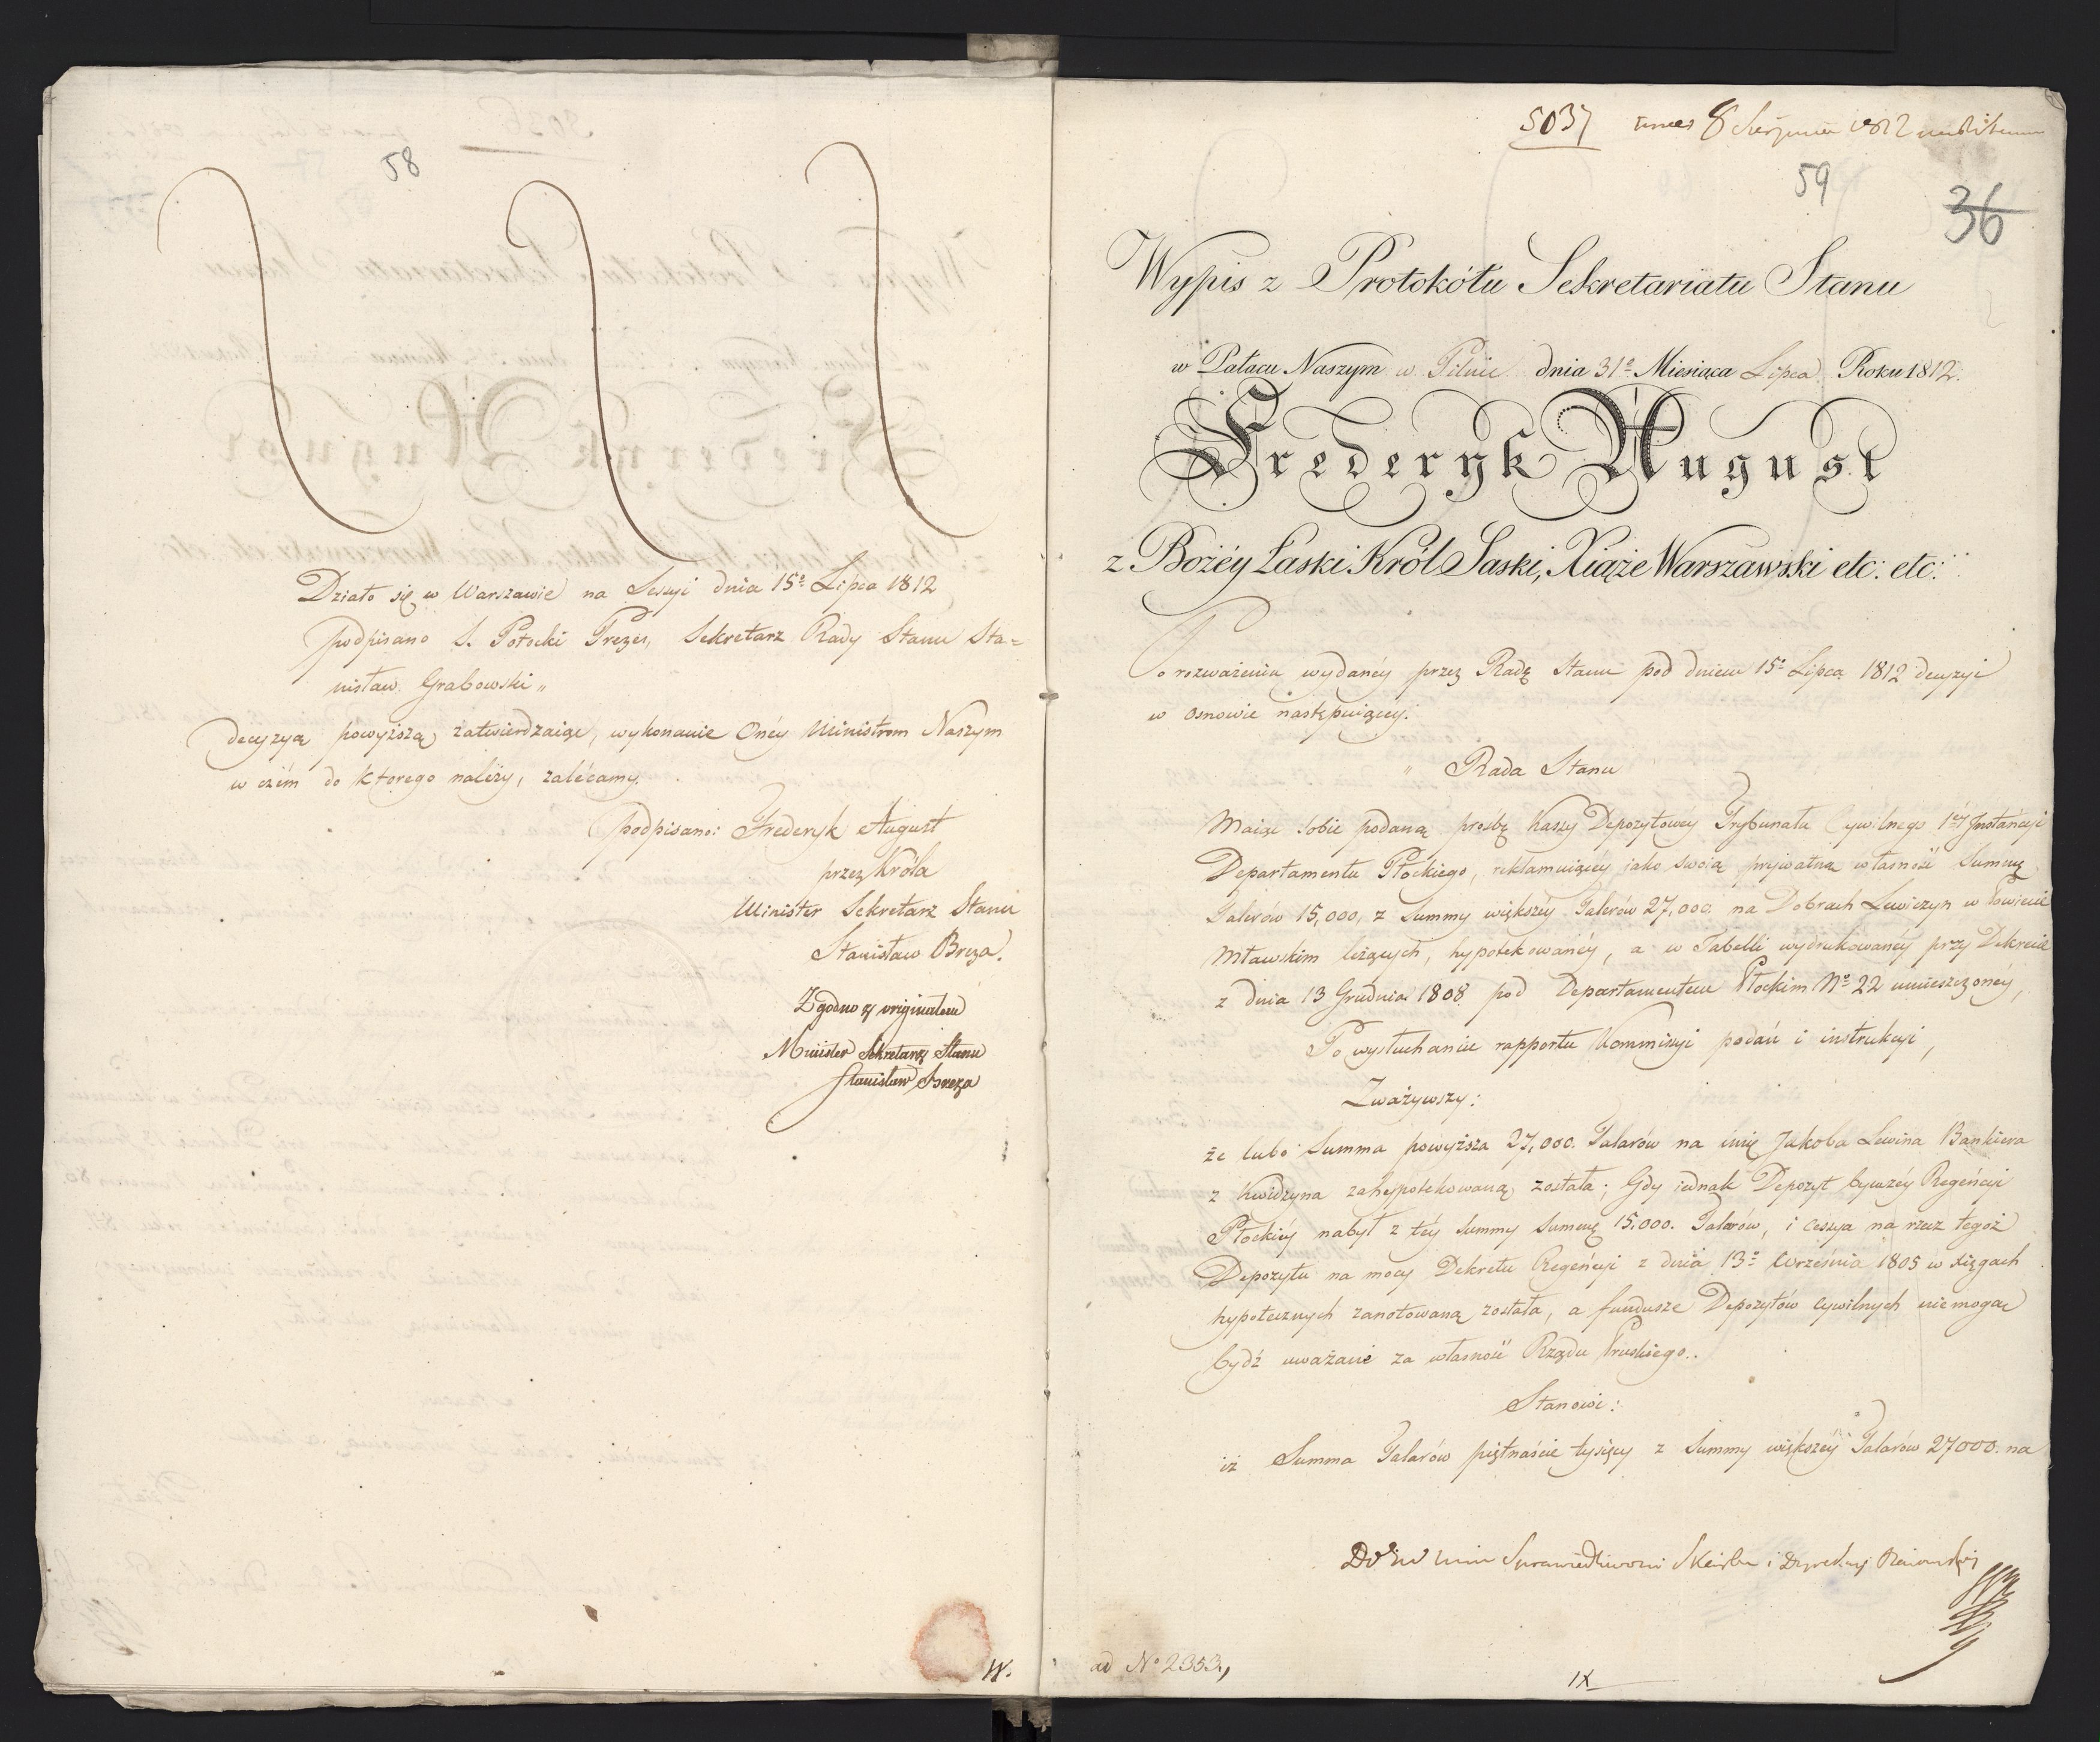 58
Działo się w Warszawie na Sessyi dnia 15º Lipca 1812
podpisano S. Potocki Prezes, Sekretarz Rady Stanu Sta=
nisław Grabowski „
decyzyą powyższą zatwierdzaiąc, wykonanie Onéy Ministrom Naszym
w czém do ktorego należy, zalécamy.
podpisano: Frederyk August
przez Króla
Minister Sekretarz Stanu
Stanisław Breza.
Zgodno z originałem
Minister Sekretarz Stanu
Stanisław Breza
5037 8 Sierpnia 1812
59
36
Wypis z Protokółu Sekretariatu Stanu
w Pałacu Naszym w Pilnic dnia 31º Miesiąca Lipca Roku 1812.
Frederyk August
z Bożéy Łaski Król Saski, Xiąże Warszawski etc: etc:
Po rozważeniu wydanéy przez Radę Stanu pod dniem 15º Lipca 1812 decyzyi
w osnowie następuiącey:
„ Rada Stanu
Maiąc sobie podaną prośbę Kassy Depozytowéy Trybunału Cywilnego 1éy Instancyi
Departamentu Płockiego, reklamuiącéy jako swoią prywatną własność Summę
Talerów 15,000, z Summy większéy Talerów 27,000. na Dobrach Lewiczyn w Powiecie
Mławskim leżących, hypotekowanéy, a w Tabelli wydrukowanéy przy Dekrecie
z dnia 13 Grudnia 1808 pod Departamentem Płockim Nº 22 umieszczonéy,
Po wysłuchaniu rapportu Kommissyi podań i instrukcyi,
Zważywszy:
że lubo Summa powyższa 27,000. Talarów na imię Jakoba Lewina Bankiera
z Kwidzyna zahypotekowaną została; Gdy iednak Depozyt bywszéy Regencyi
Płockiéy nabył z téy Summy Summę 15,000. Talarów, i cessya na rzecz tegoż
Depozytu na mocy Dekretu Regencyi z dnia 13º Września 1805 w xięgach
hypotecznych zanotowaną została, a fundusze Depozytów cywilnych niemogą
bydź uważane za własność Rządu Pruskiego..
Stanowi:
iż Summa Talarów piętnaście tysięcy z Summy większéy Talarów 27000. na
Sprawiedliwości Skarbu i Dyrekcyi
ad Nº 2353.,
IX